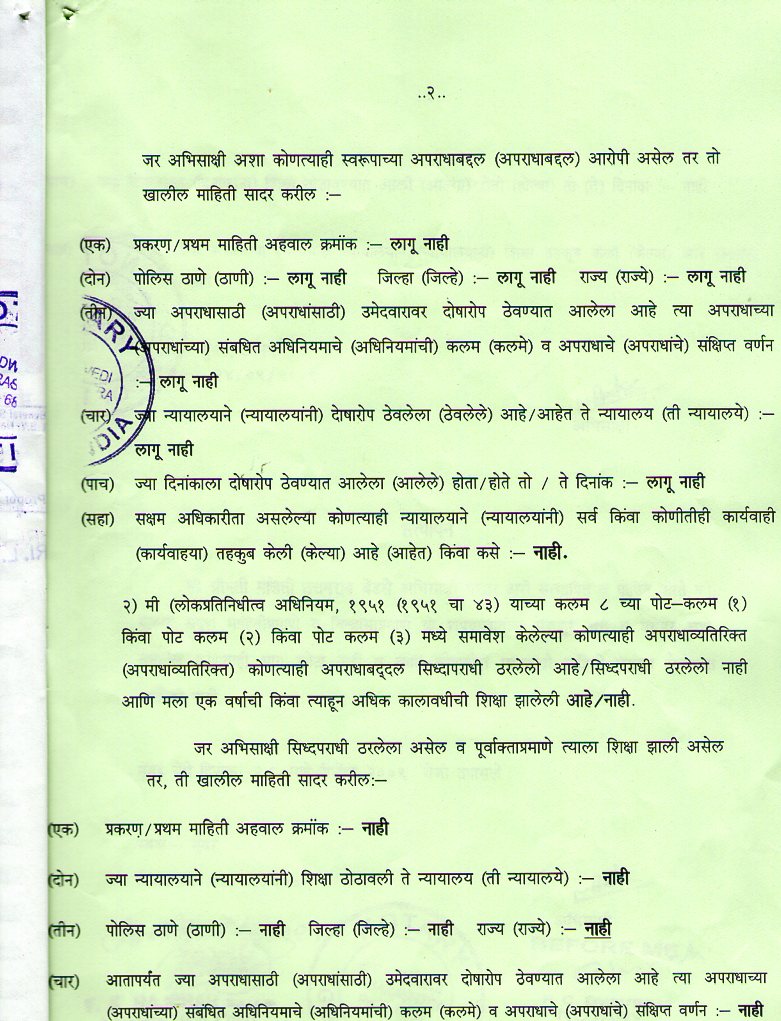 ..२..
जर अभिसाक्षी अशा कोणत्याही स्वरूपाच्या अपराधाबद्दल (अपराधाबद्दल) आरोपी असेल तर तो
खालील माहिती सादर करील :–
(एक) प्रकरण/प्रथम माहिती अहवाल क्रमाँक :– लागू नाही
(दोन) पोलिस ठाणे (ठाणी) :– लागू नाही जिल्हा (जिल्हे) :– लागू नाही राज्य (राज्ये) :– लागू नाही
(तीन) ज्या अपराधासाठी (अपराधांसाठी) उमेदवारावर दोषारोप ठेवण्यात आलेला आहे त्या अपराधांच्या
(अपराधांच्या) संबधित अधिनियमाचे (अधिनियमांची) कलम (कलमे) व अपराधाचे (अपराधांचे) संक्षिप्त वर्णन
:– लागू नाही
(चार) ज्या न्यायालयाने (न्यायालयांनी) दोषारोप ठेवलेला (ठेवलेले) आहे/आहेत ते न्यायालय (ती न्यायालये) :–
लागू नाही
(पाच) ज्या दिनांकाला दोषारोप ठेवण्यात आलेला (आलेले) होता/होते तो / ते दिनांक :– लागू नाही
(सहा) सक्षम अधिकारीता असलेल्या कोणत्याही न्यायालयाने (न्यायालयांनी) सर्व किंवा कोणीतीही कार्यवाही
(कार्यवाहया) तहकुब केली (केल्या) आहे (आहेत) किंवा कसे :– नाही.
२) मी (लोकप्रतिनिधीत्व अधिनियम, १९५१ (१९५१ चा ४३) याच्या कलम ८ च्या पोट–कलम (१)
किंवा पोट कलम (२) किंवा पोट कलम (३) मध्ये समावेश केलेल्या कोणत्याही अपराधाव्यतिरिक्त
(अपराधांव्यतिरिक्त) कोणत्याही अपराधाबद्दल सिध्दापराधी ठरलेलो आहे/सिध्दपराधी ठरलेलो नाही
आणि मला एक वर्षाची किंवा त्याहून अधिक कालावधीची शिक्षा झालेली आहे/नाही.
जर अभिसाक्षी सिध्दपराधी ठरलेला असेल व पूर्वाक्ताप्रमाणे त्याला शिक्षा झाली असेल
तर, ती खालील माहिती सादर करील:–
(एक) प्रकरण/प्रथम माहिती अहवाल क्रमाँक :– नाही
(दोन) ज्या न्यायालयाने (न्यायालयांनी) शिक्षा ठोठावली ते न्यायालय (ती न्यायालये) :– नाही
(तीन) पोलिस ठाणे (ठाणी) :– नाही जिल्हा (जिल्हे) :– नाही राज्य (राज्ये) :– नाही
(चार) आतापर्यंत ज्या अपराधासाठी (अपराधांसाठी) उमेदवारावर दोषारोप ठेवण्यात आलेला आहे त्या अपराधाच्या
(अपराधांच्या) संबंधित अधिनियमाचे (अधिनियमांची) कलम (कलमे) व अपराधाचे (अपराधांचे) संक्षिप्त वर्णन :– नाही